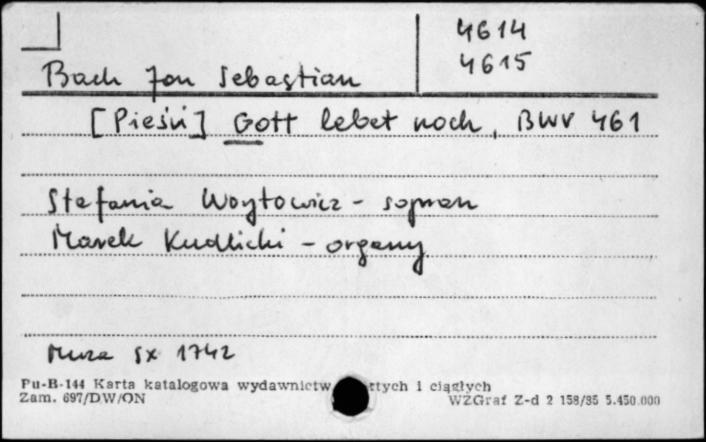 4614
4615
Bach Jan Sebastian
[Pieśń] Gott lebet noch, BWV 461
Stefania Woytowicz - sopran
Marek Kudlicki - organy
Muza SX 1742
Pu-B-144 Karta katalogowa wydawnictw i ciągłych
Zam. 697/DW/ON
WZGraf Z-d 2 158/85 5.450.000